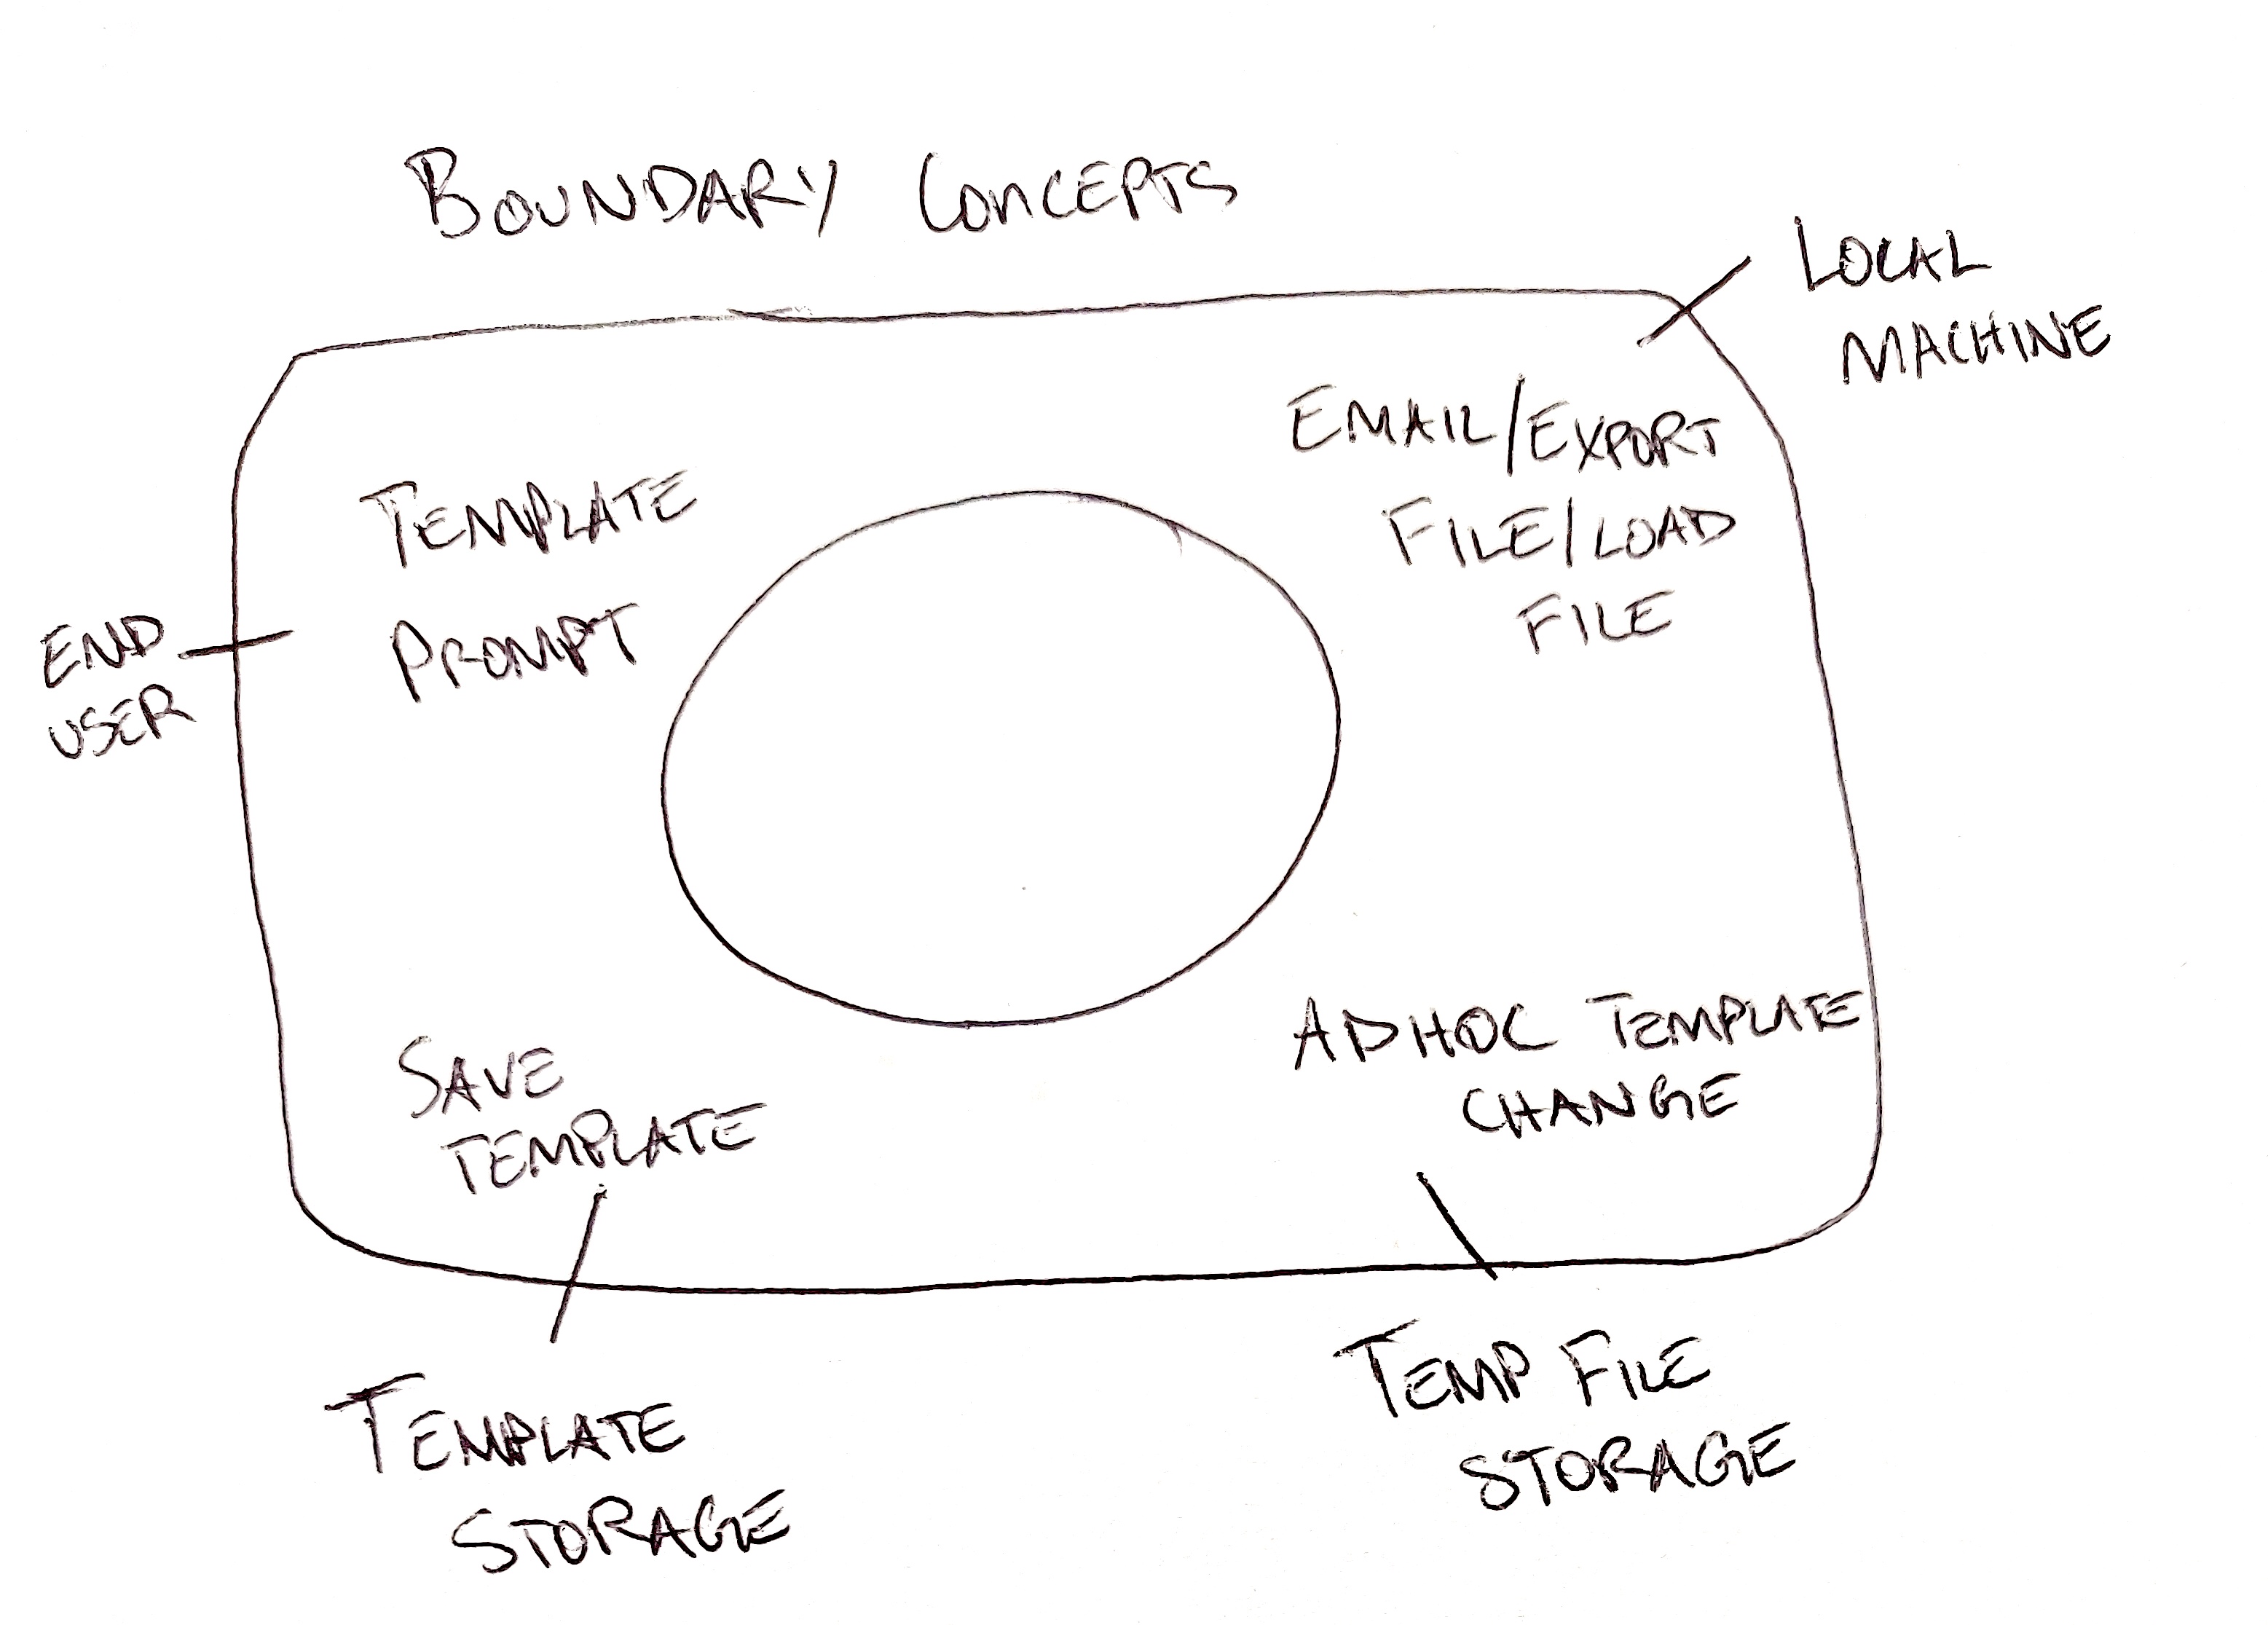 BOUNDARY CONCEPTS
LOCAL
MACHINE
EMAIL/EXPORT
FILE/LOAD
FILE
TEMPLATE
PROMPT
END
USER
SAVE
TEMPLATE
ADHOC TEMPLATE
CHANGE
TEMPLATE
STORAGE
TEMP FILE
STORAGE